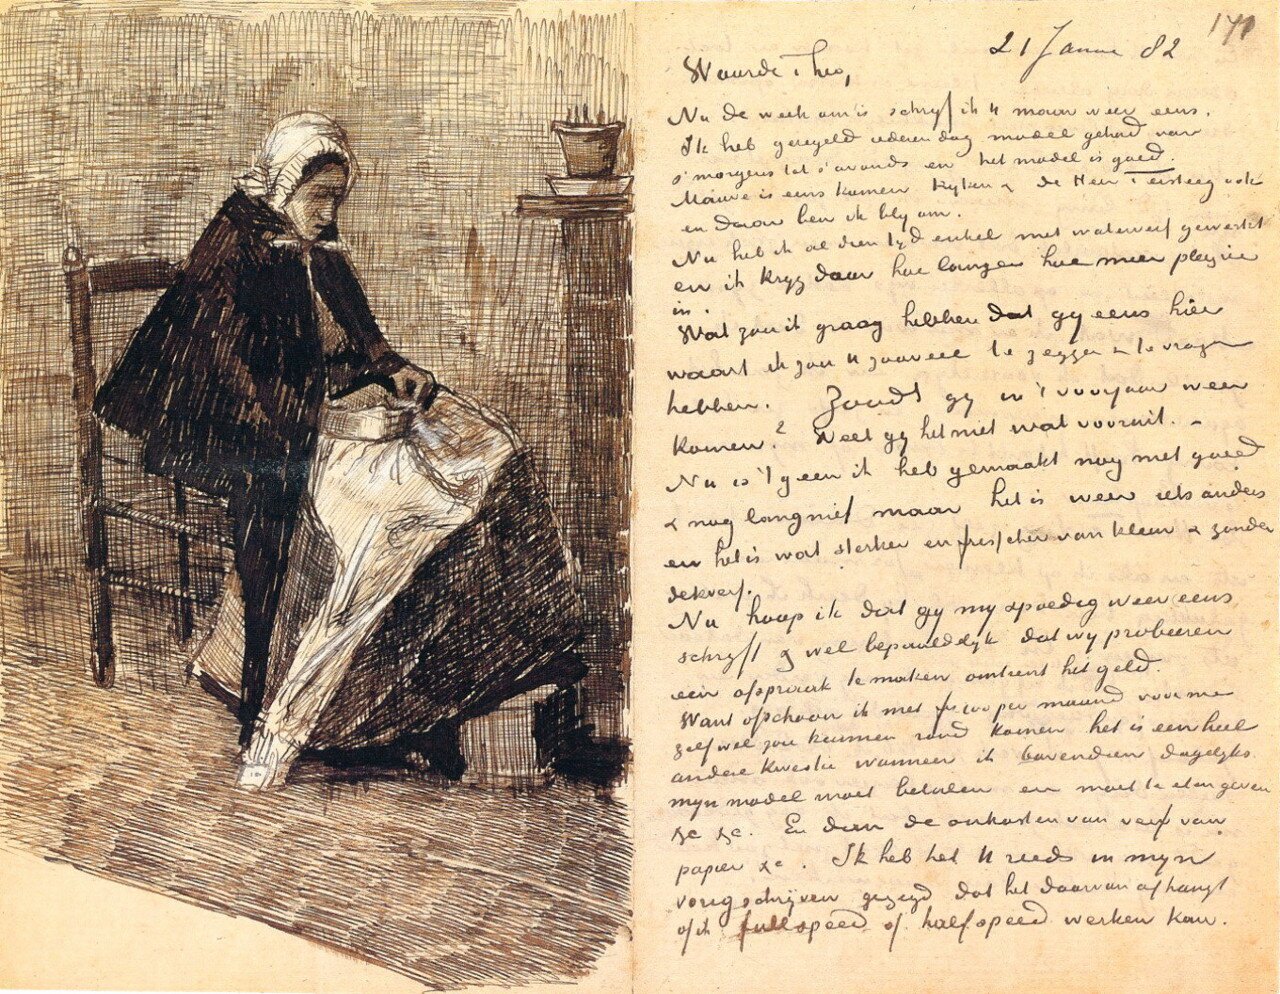 171
21 Januar 82
Waarde Theo,
Nu de week om is schryf ik U maar weer eens.
Ik heb geregeld iederen dag model gehad van
s'morgens tot s'avonds en het model is goed.
Mauve is eens komen kyken & de Heer Tersteeg ook
en daar ben ik bly om.
Nu heb ik al dien tyd enkel met waterverf gewerkt
en ik kryg daar hoe langer hoe meer pleyzier
in.
Wat zou ik graag hebben dat gy eens hier
waart ik zou U zooveel te zeggen & te vragen
hebben. Zoudt gy in 't voorjaar weer
komen? Weet gy het niet wat vooruit. –
Nu is 't geen ik heb gemaakt nog niet goed
& nog lang niet maar het is weer iets anders
en het is wat sterker en frisscher van kleur & zonder
dekverf.
Nu hoop ik dat gy my spoedig weer eens
schryft & wel bepaaldelyk dat wy probeeren
een afspraak te maken omtrent het geld.
Want ofschoon ik met fr 100 per maand voor me
zelf wel zou kunnen rond komen het is een heel
andere kwestie wanneer ik bovendien dagelyks
myn model moet betalen en moet te eten geven
&c &c. En dien de onkosten van verf van
papier &c. Ik heb het U reeds in myn
vorig schrijven gezegd dat het daarvan afhangt
of ik full speed of half speed werken kan.